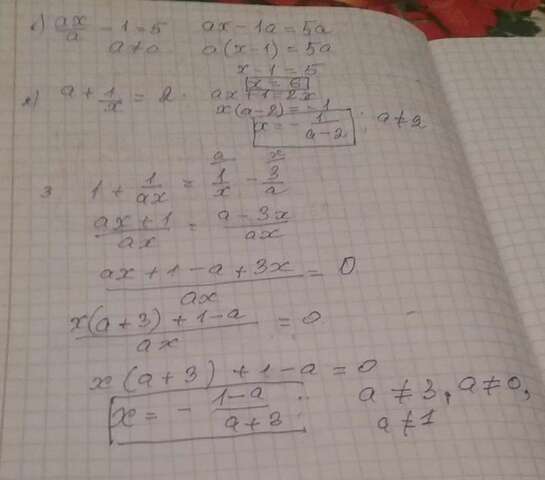 1) ax/a - 1 = 5    ax - 1a = 5a
a ≠ 0    a(x-1) = 5a
x - 1 = 5
x = 6
2) a + 1/x = 2 .    ax + 1 = 2x
x(a-2) = -1
x = - 1/(a-2) ; a ≠ 2
3    1 + 1/(ax) = 1/x - 3/a
(ax+1)/(ax) = (a-3x)/(ax)
(ax+1-a+3x)/(ax) = 0
(x(a+3)+1-a)/(ax) = 0
x(a+3)+1-a = 0
x = - (1-a)/(a+3) ; a ≠ 3, a ≠ 0,
a ≠ 1